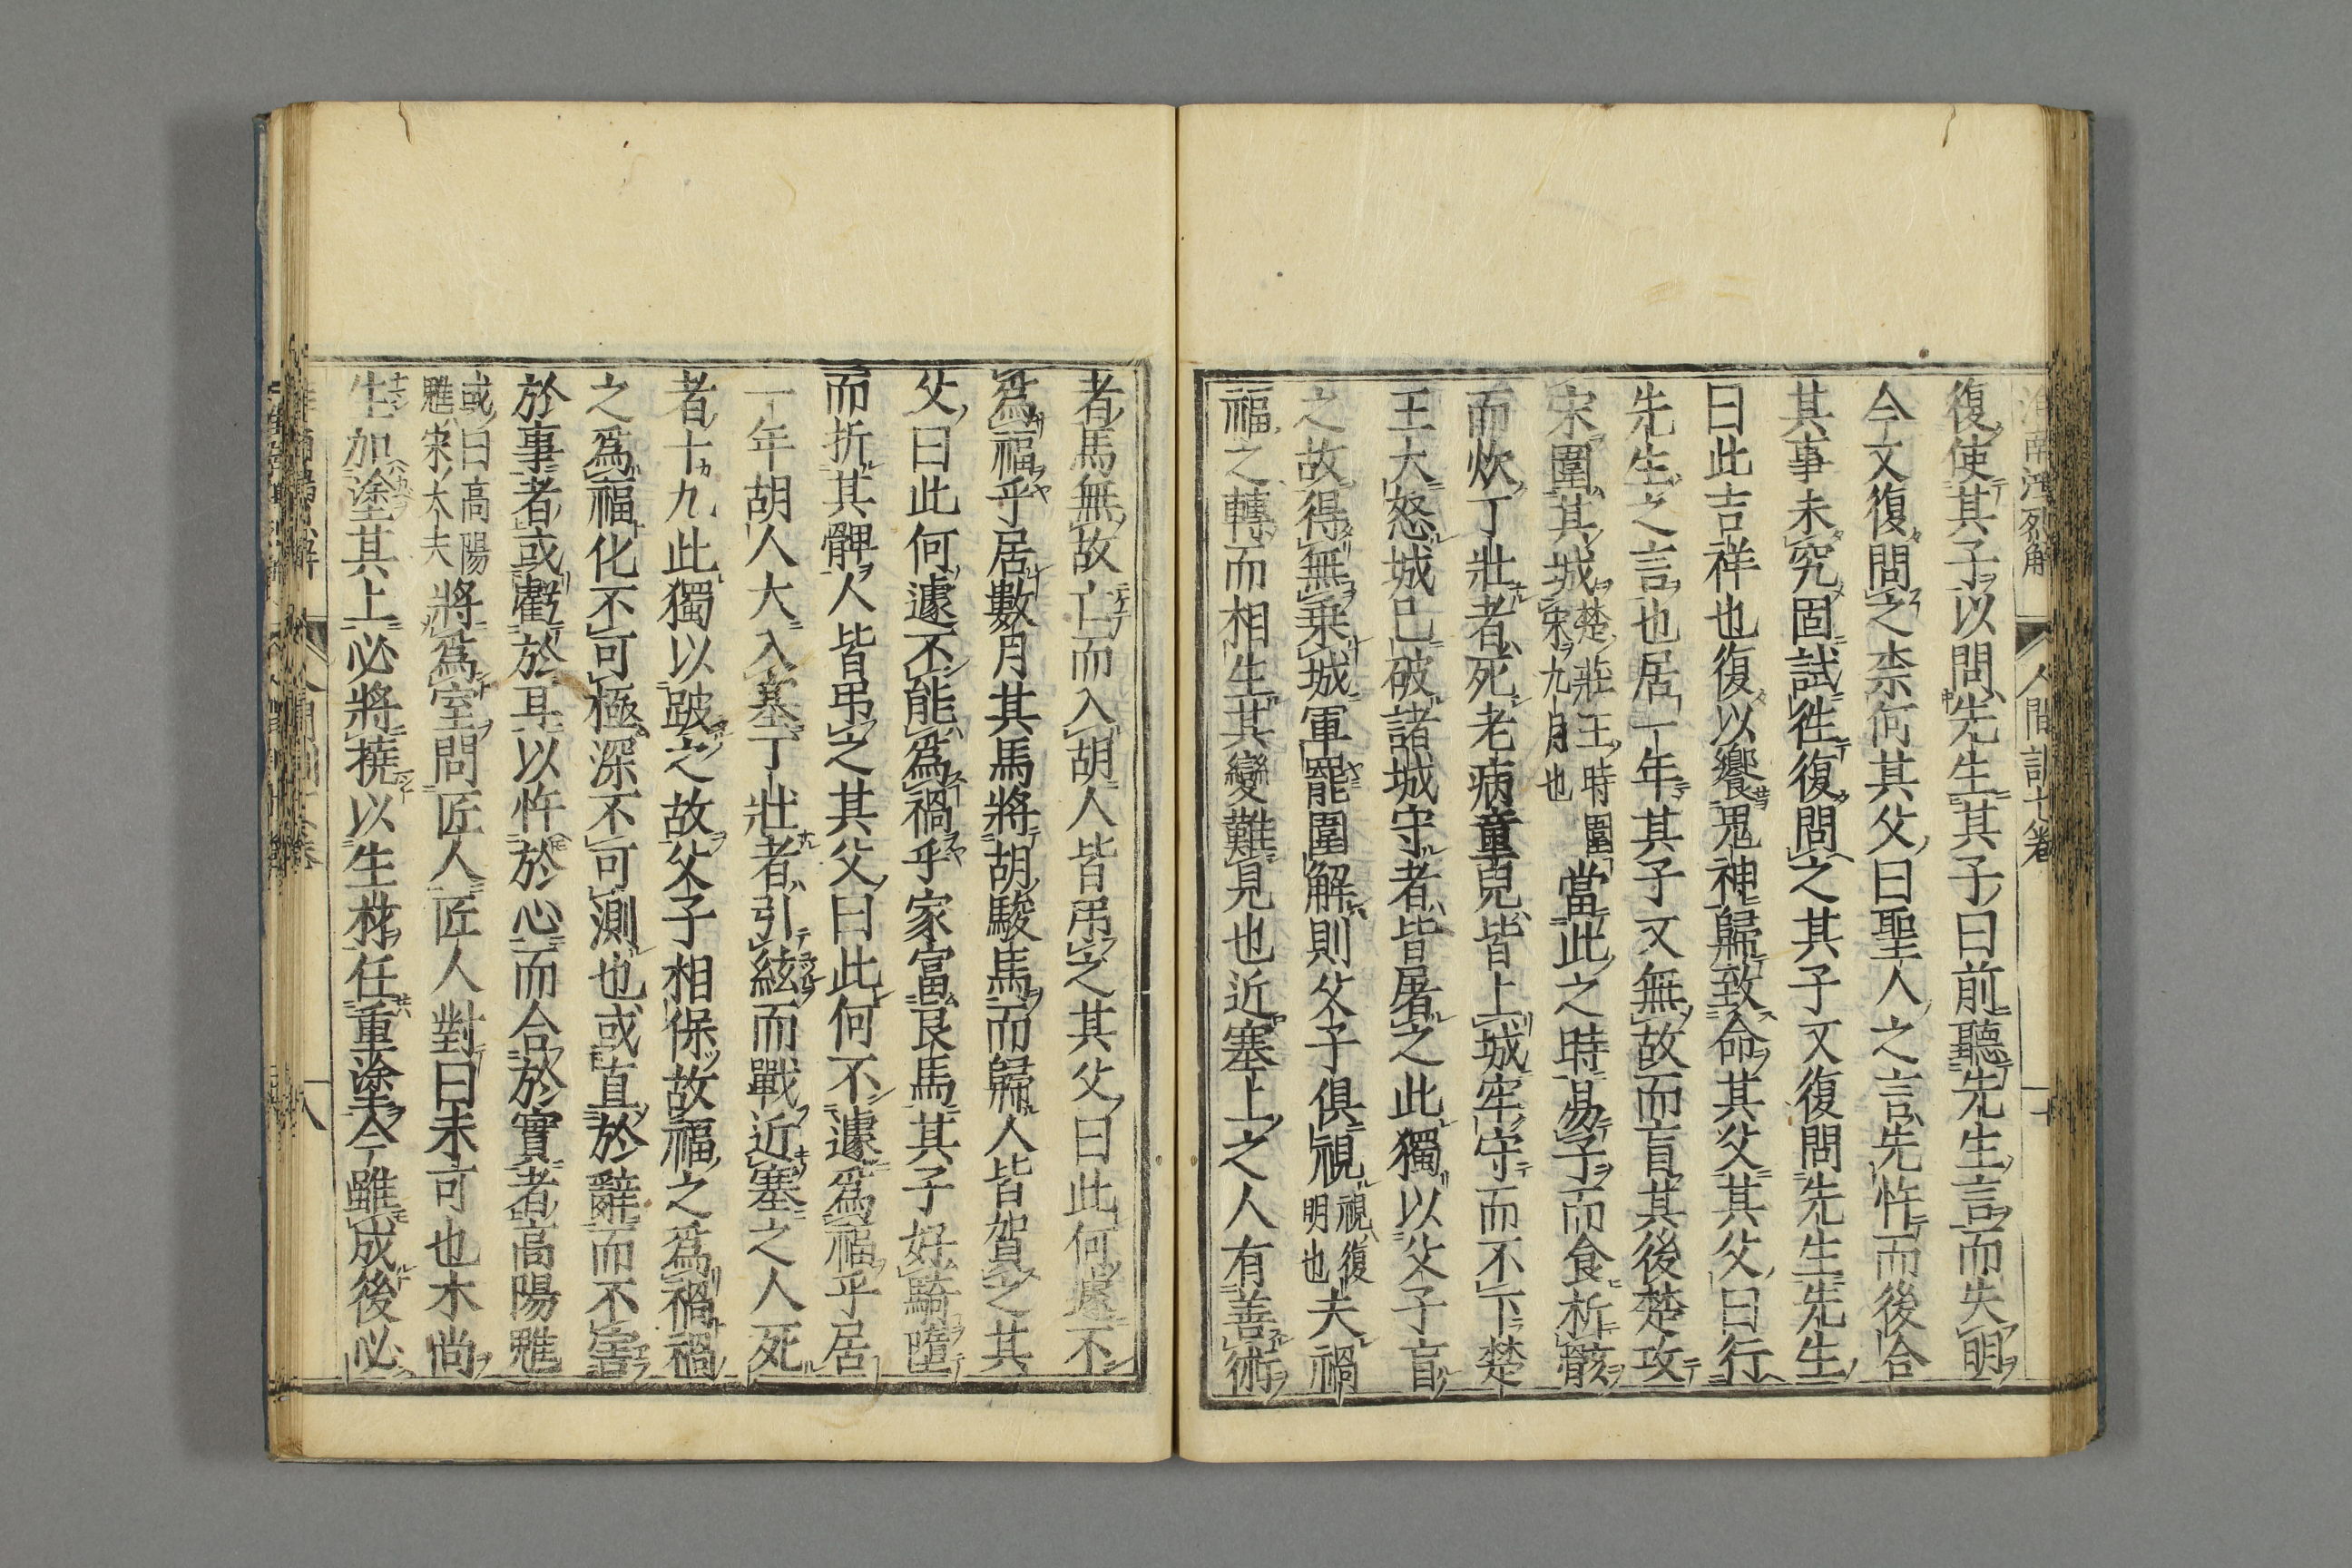 淮南鴻烈解 人間訓十卷
復使其子以問先生其子曰前聽先生言而失明
今又復問之柰何其父曰聖人之言先忤而後合
其事未究固試徃復問之其子又復問先生先生
曰此吉祥也復以饗鬼神歸致命其父其父曰行
先生之言也居一年其子又無故而盲其後楚攻
宋圍其城楚莊王時圍宋九月也當此之時易子而食析骸
而炊丁壯者死老病童兒皆上城牢守而不下楚
王大怒城已破諸城守者皆屠之此獨以父子盲
之故得無乗城軍罷圍解則父子俱視視復明也夫禍
福之轉而相生其變難見也近塞上之人有善術
者馬無故亡而入胡人皆弔之其父曰此何遽不
爲福乎居數月其馬將胡駿馬而歸人皆賀之其
父曰此何遽不能爲禍乎家富良馬其子好騎墮
而折其髀人皆弔之其父曰此何不遽爲福乎居
一年胡人大入塞丁壯者引絃而戰近塞之人死
者十九此獨以跛之故父子相保故福之爲禍禍
之爲福化不可極深不可測也或直於辭而不害
於事者或虧於耳以忤於心而合於實者高陽魋
或曰高陽魋宋大夫將爲室問匠人匠人對曰未可也木尚
生加塗其上必將撓以生材任重塗今雖成後必
八